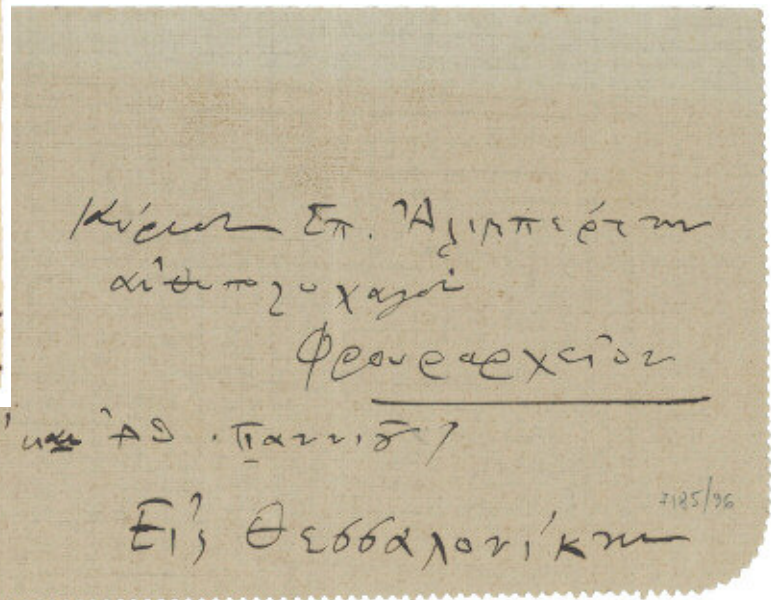 Κύριον Σπ. Ἀλιμπέρτην
ἀνθυπολοχαγὸν
Φρουραρχεῖον
Ἀθ.
7185/96
Εἰς Θεσσαλονίκην